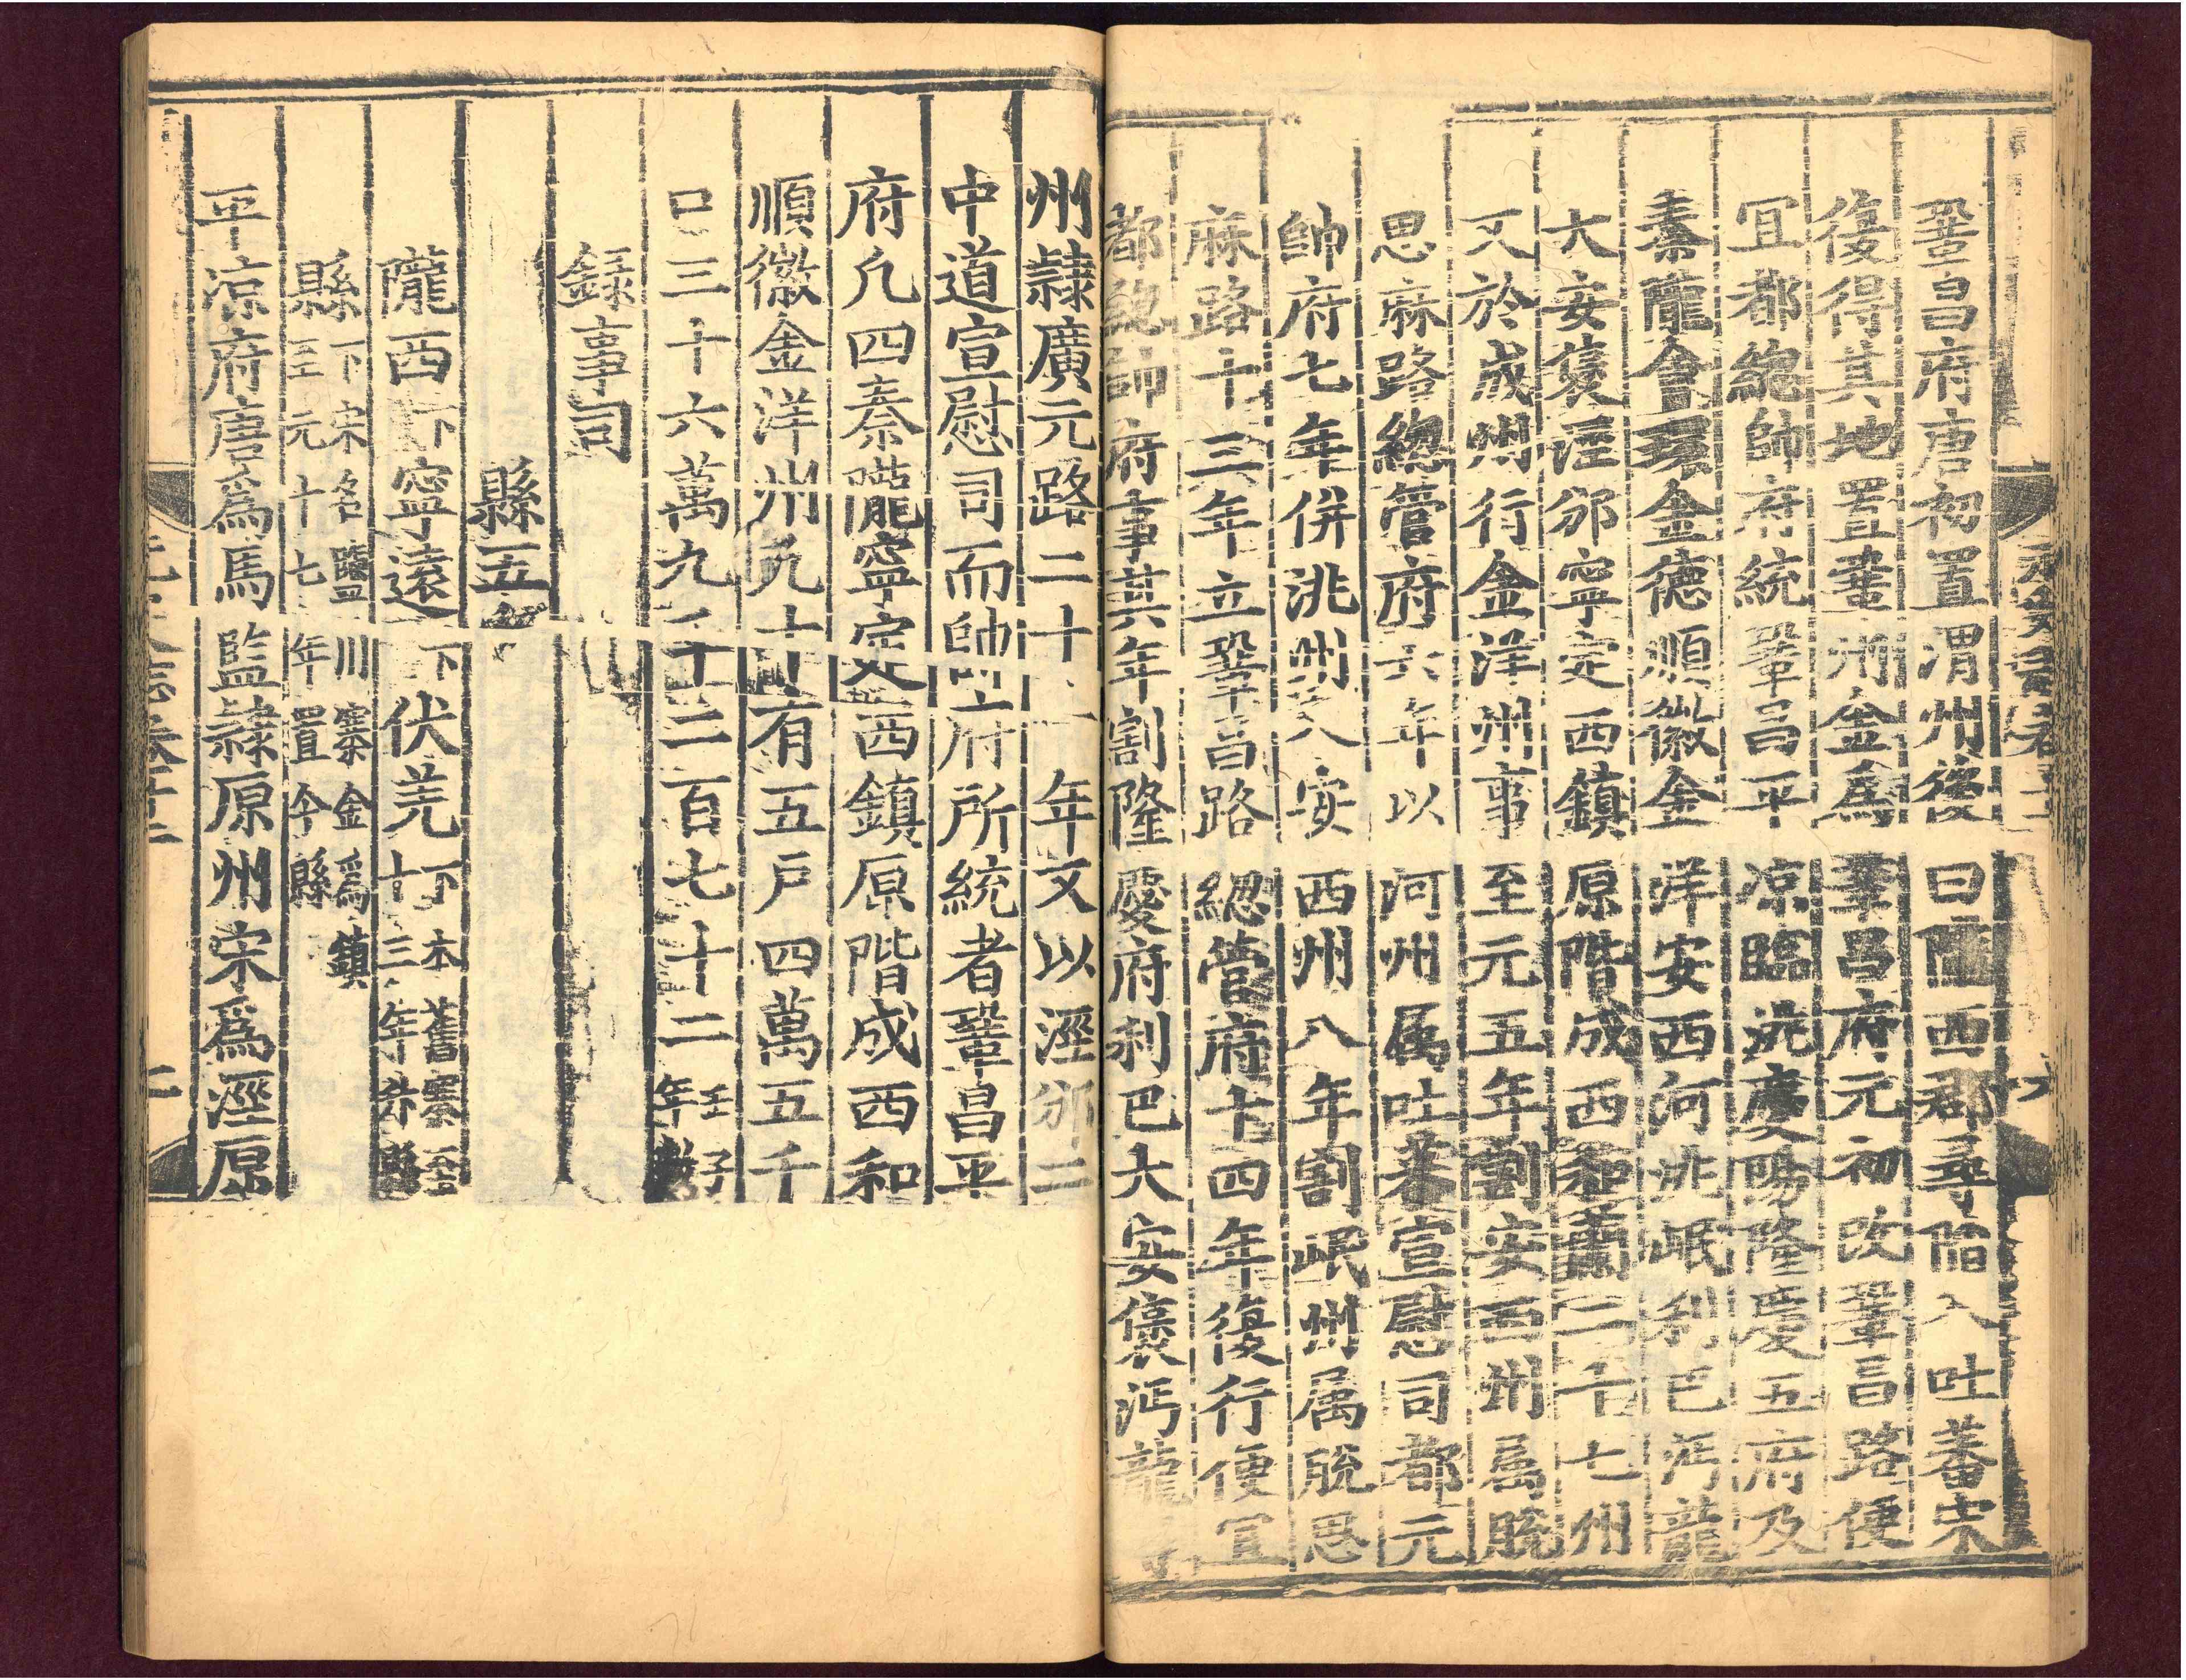 鞏昌府唐初置渭州後曰隴西郡尋陷入吐蕃宋
復得其地置鞏州金爲鞏昌府元初改鞏昌路便
宜都總帥府統鞏昌平凉臨洮慶陽隆慶五府及
秦隴會環金德順徽金洋安西河洮岷利巴沔龍
大安褒涇邠寧定西鎮原階成西和蘭二十七州
又於成州行金洋州事至元五年割安西州属脫
思麻路總管府六年以河州属吐蕃宣慰司都元
帥府七年併洮州入安西州八年割岷州属脫思
麻路十三年立鞏昌路總管府十四年復行便宜
都總帥府事其年割隆慶府利巴大安褒沔龍
州隷廣元路二十一年又以涇邠二
中道宣慰司而帥府所統者鞏昌平
府凡四秦隴寧定西鎮原階成西和
順徽金洋州凡十有五戶四萬五千
口三十六萬九千二百七十二壬子年數
錄事司
縣五
隴西下寧遠下伏羌下本舊寨至
十三年升縣
縣下宋名鹽川寨金爲鎮
至元十七年置今縣
平涼府唐爲馬監隷原州宋爲涇原
元史志卷十二
二